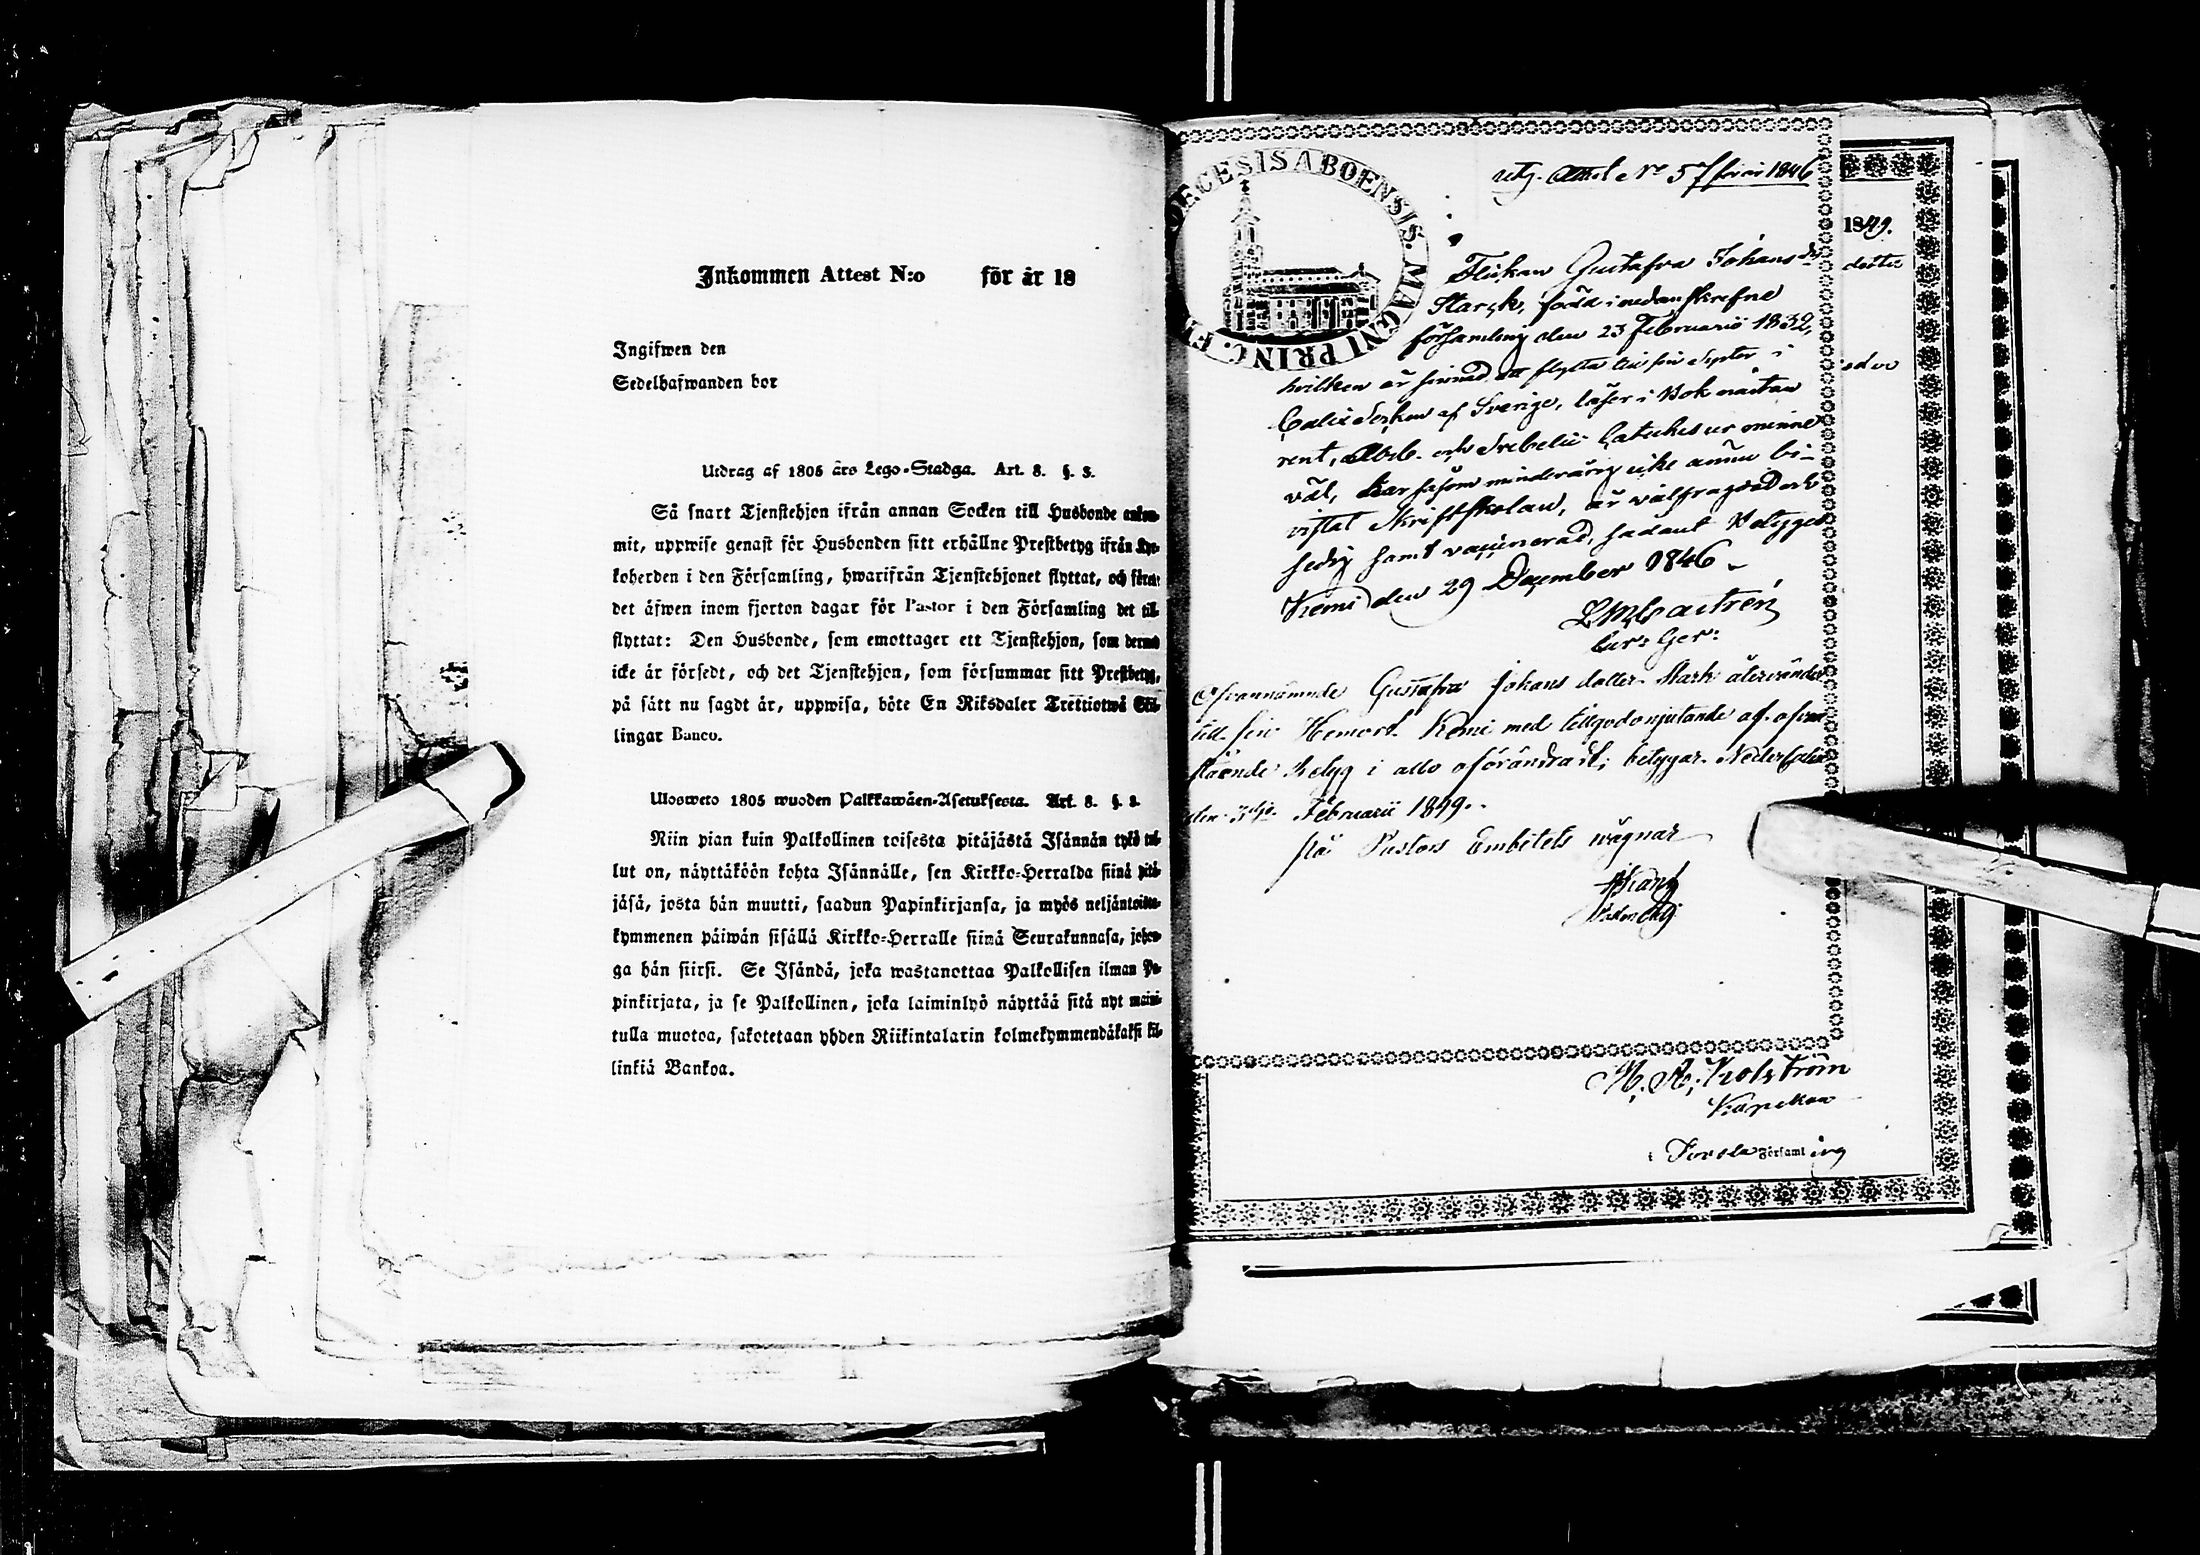 Inkommen Attest N:o för år 18
Ingifwen den
Sedelhafwanden bor
Utdrag af 1805 års Lego-Stadga. Art. 8. §. 3.
Så snart Tjenstehjon ifrån annan Socken till Husbonde
mit, uppwise genast för Husbonden sitt erhållne Prestbetyg ifrån
koherden i den Församling, hwarifrån Tjenstehjonet flyttat, och
det äfwen inom fjorton dagar för Pastor i den Församling det
flyttat: Den Husbonde, som emottager ett Tjenstehjon, som
icke är försedt, och det Tjenstehjon, som försummar sitt Prestbetyg,
på sätt nu sagdt är, uppwisa, böte En Riksdaler Trettiotwå
lingar Banco.
Ulosweto 1805 wuoden Palkkawäen-Asetuksesta. Art. 8. §. 3.
Niin pian kuin Palkollinen toisesta pitäjästä Isännän työö
lut on, näyttäköön kohta Isännälle, sen Kirkko-Herralda siinä
jäsä, josta hän muutti, saadun Papinkirjansa, ja myös
kymmenen päiwän sisällä Kirkko-Herralle siinä Seurakunnasa,
ga hän siirsi. Se Isändä, joka wastanottaa Palkollisen ilman
pinkirjata, ja se Palkollinen, joka laiminlyö näyttää sitä nyt
tulla muotoa, sakotetaan yhden Riikintalarin kolmekymmendäkaksi
linkiä Bankoa.
DIOECESIS ABOENSIS. MAGNI PRINC.
utg. Attest N:o 57 för år 1846
Flickan Gustafva Johans dr
Starck, född i nedanskrefne
församling den 23 Februarii 1832,
hvilken är sinnad att flytta till sin Syster i
Calix Socken af Sverige, läser i Bok nästan
rent, Abcb. och Svebelii Catches ur minnet
väl, har såsom minderårig icke ännu bi-
vistat Skriftskolan, är välfrägdad och
sedig samt vaccinerad, sådant betyges
Kemi den 29 December 1846.
Castrén
Ofvannämnde Gustafva Johans dotter Stark återvänder
till sin Hemort Kemi med tillgodonjutande af ofvan
stående Betyg i allo oförändradt; betygar. Neder Calix
den 3dje Februarii 1849.
på Pastors Embetets wägnar
1849.
dotter
Kapellan
Församling